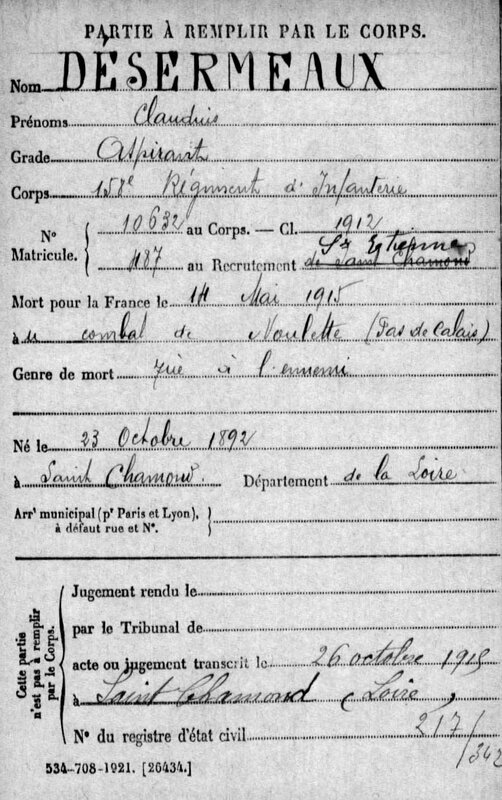 PARTIE À REMPLIR PAR LE CORPS.
Nom DÉSERMEAUX
Prénoms Claudius
Grade Aspirant
Corps 158e Régiment d'Infanterie
N° Matricule. 10632 au Corps. — Cl. 1912
1187 au Recrutement de Saint Chamond St Etienne
Mort pour la France le 14 Mai 1915
à u combat de Noulette (Pas de Calais)
Genre de mort Tué à l'ennemi
Né le 23 Octobre 1892
à Saint Chamond. Département de la Loire
Arrt municipal (pr Paris et Lyon),
à défaut rue et N°.
Cette partie n'est pas à remplir par le Corps.
Jugement rendu le
par le Tribunal de
acte ou jugement transcrit le 26 octobre 1915
à Saint Chamond (Loire)
N° du registre d'état civil 217/342
534-708-1921. [26434.]